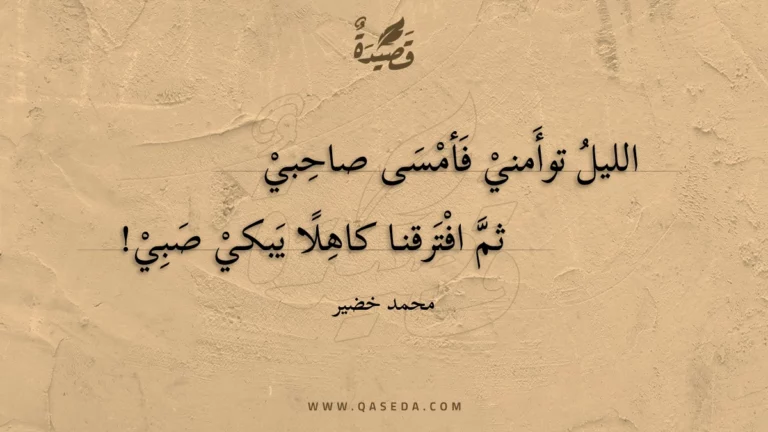 قَصِيدَةٌ
الليلُ توأَمنيْ فَأمْسَى صاحِبيْ
ثمَّ افْتَرقنا كاهِلًا يَبكيْ صَبِيْ!
محمد خضير
WWW.QASEDA.COM